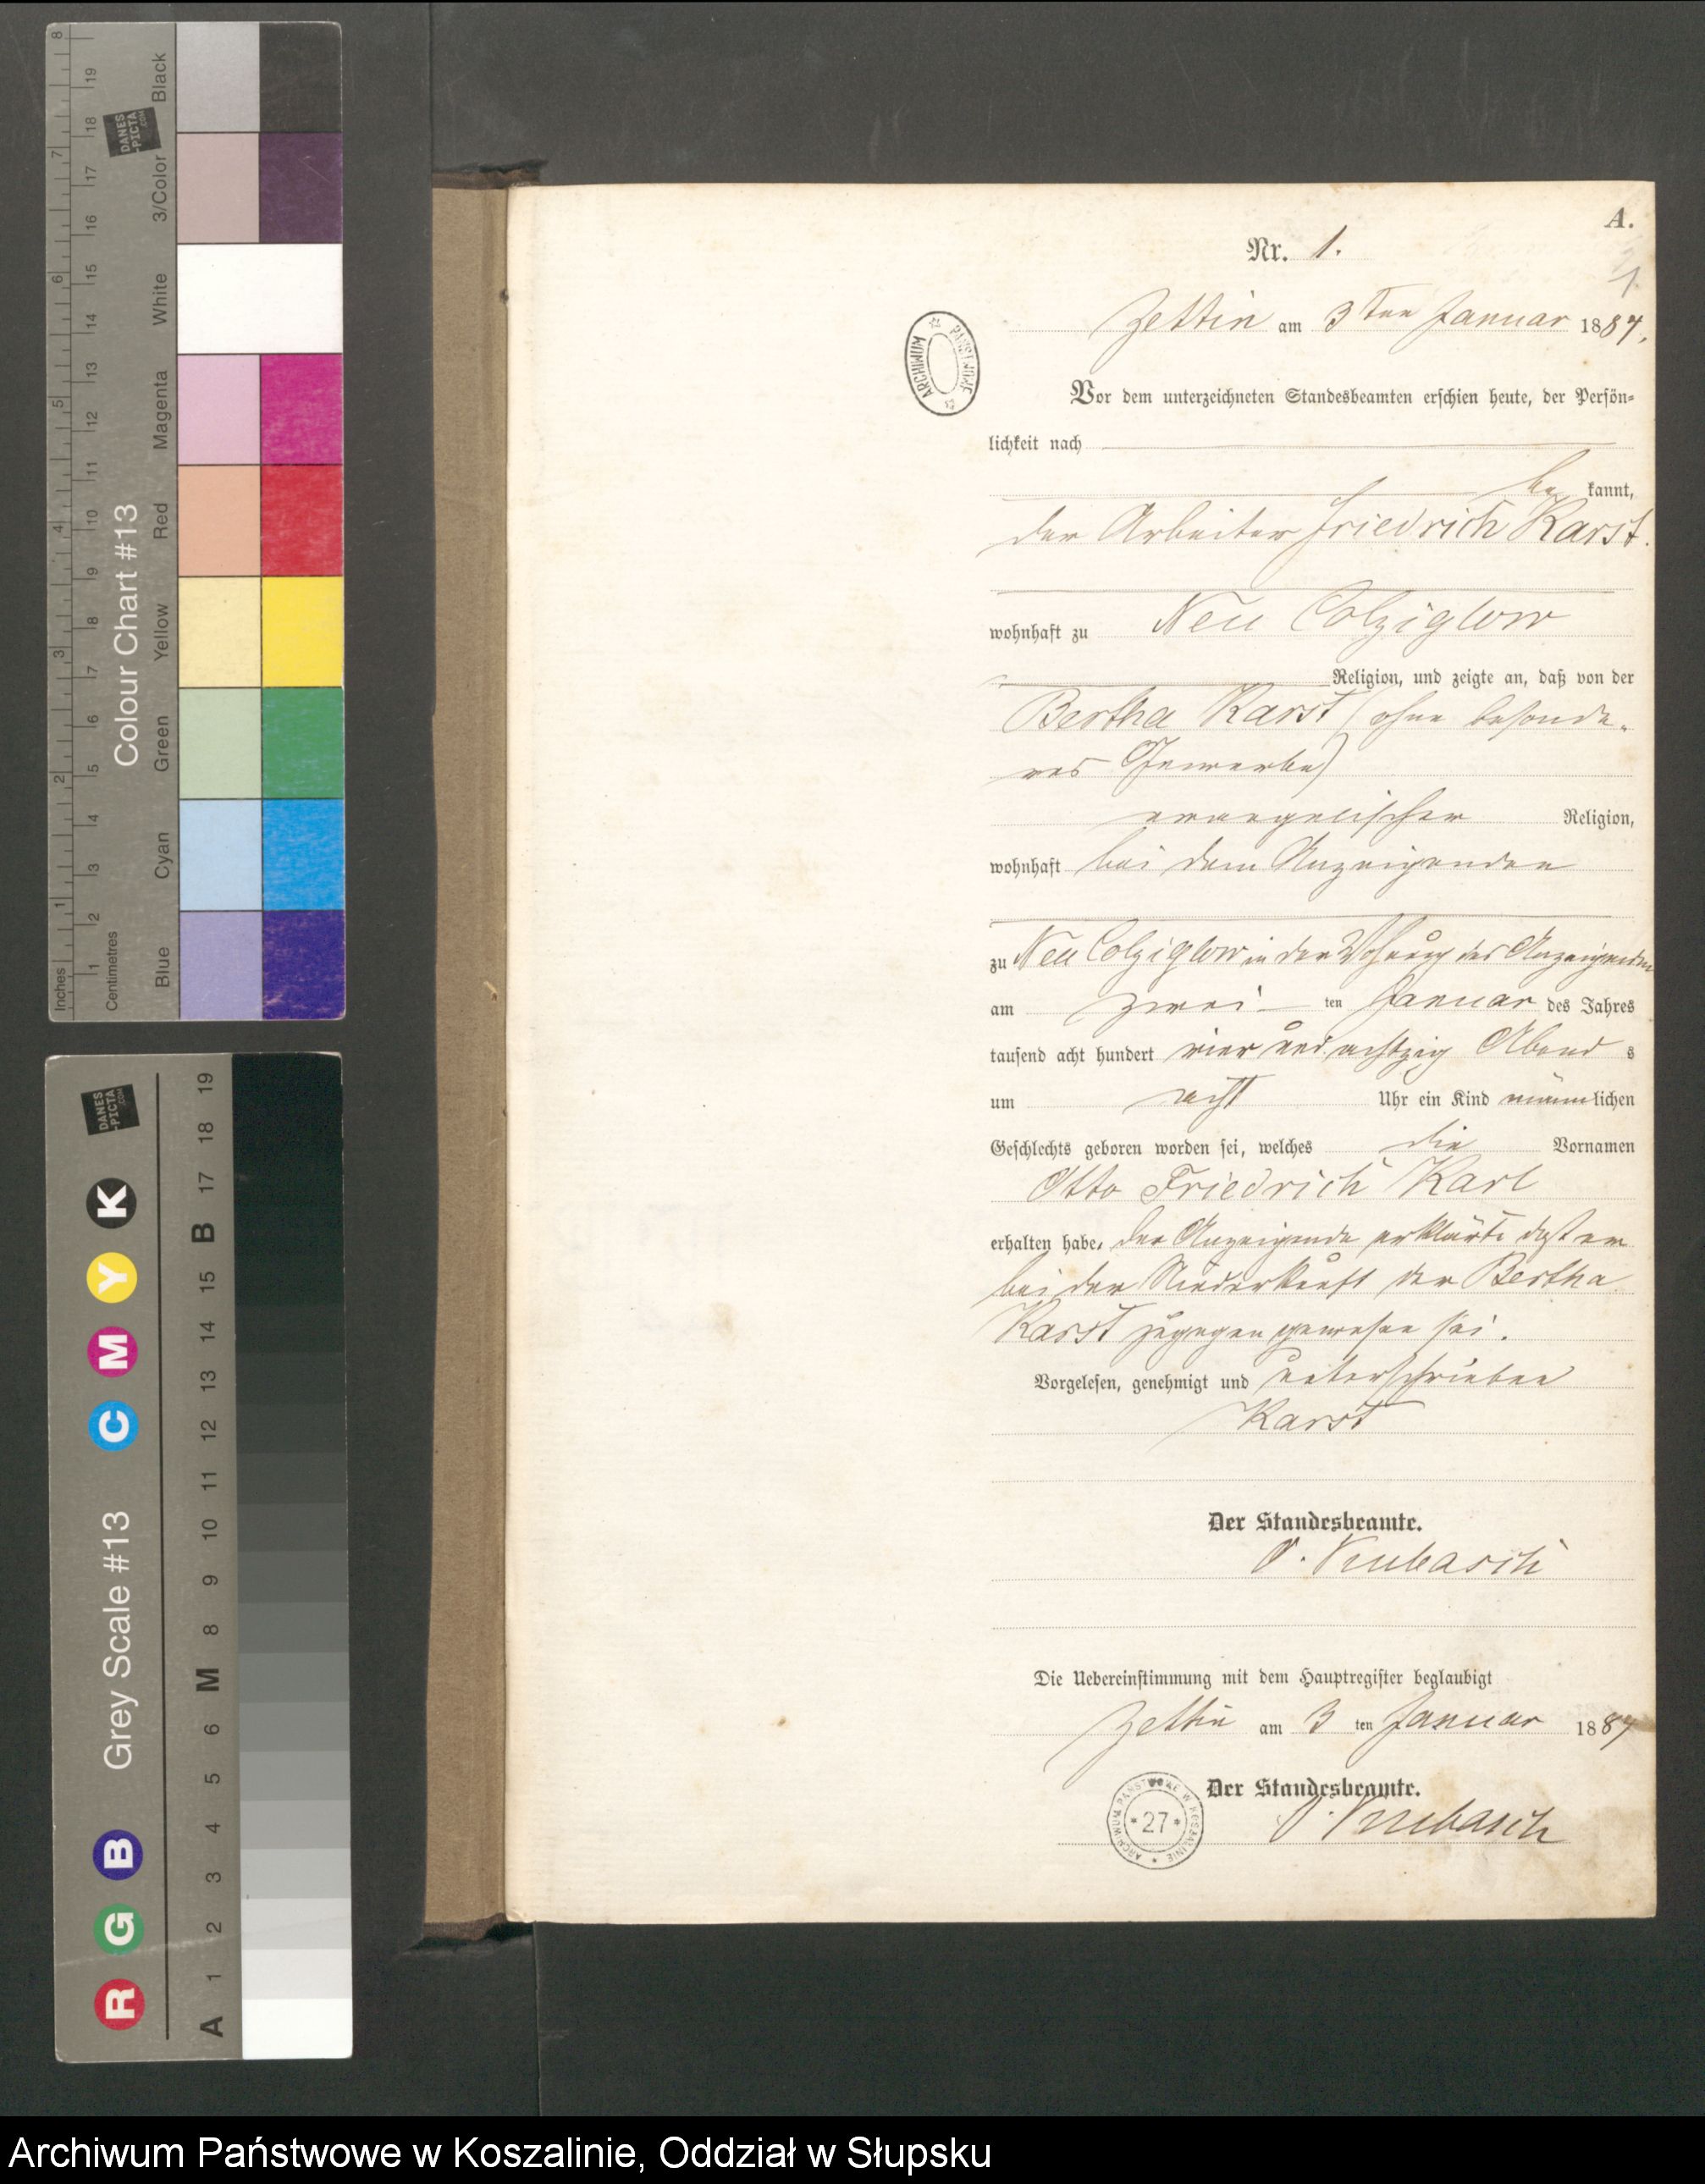 A.
Nr. 1.
1.
Zettin am 3ten Januar 1884.
Vor dem unterzeichneten Standesbeamten erschien heute, der Persön-
lichkeit nach
be kannt,
der Arbeiter Friedrich Karst.
wohnhaft zu Neu Colziglow
Religion, und zeigte an, daß von der
Bertha Karst (ohne besonde-
res Gewerbe)
evangelischer Religion,
wohnhaft bei dem Anzeigenden
zu Neu Colziglow in der Wohnung des Anzeigenden
am zwei ten Januar des Jahres
tausend acht hundert vier und achtzig Abend s
um acht Uhr ein Kind männlichen
Geschlechts geboren worden sei, welches die Vornamen
Otto Friedrich Karl
erhalten habe. Der Anzeigende erklärte daß er
bei der Niederkunft der Bertha
Karst zugegen gewesen sei.
Vorgelesen, genehmigt und unterschrieben
Karst
Der Standesbeamte.
O.
Die Uebereinstimmung mit dem Hauptregister beglaubigt
Zettin am 3 ten Januar 1884
Der Standesbeamte.
O.
ARCHIWUM PAŃSTWOWE
ARCHIWUM PAŃSTWOWE W KOSZALINIE
* 27 *
Inches 1 2 3 4 5 6 7 8
Centimetres 1 2 3 4 5 6 7 8 9 10 11 12 13 14 15 16 17 18 19
Colour Chart #13
Blue Cyan Green Yellow Red Magenta White 3/Color Black
DANES
-PICTA
.COM
Grey Scale #13
R G B C M Y K
A 1 2 3 4 5 6 M 8 9 10 11 12 13 14 15 B 17 18 19
DANES
-PICTA
.COM
Archiwum Państwowe w Koszalinie, Oddział w Słupsku